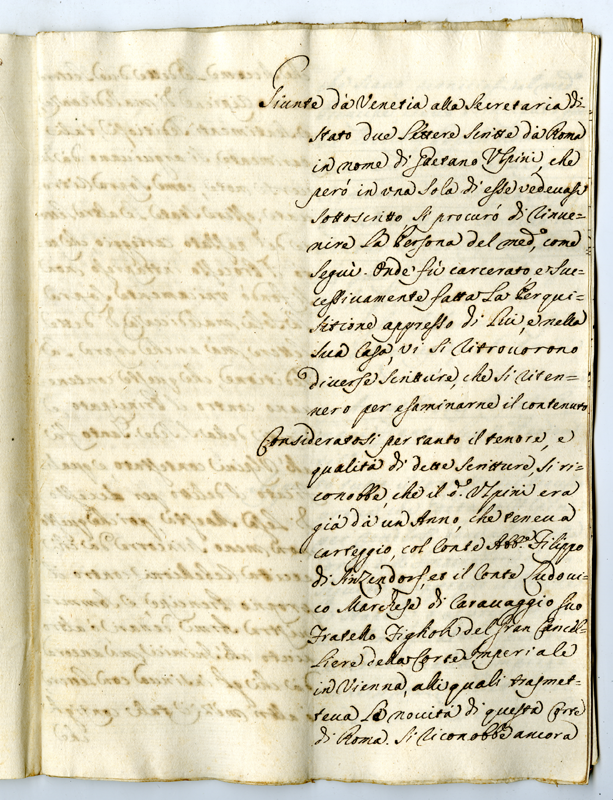 Giunte dà Venetia alla Secretaria di
Stato due Lettere scritte dà Roma
in nome di Gaetano Vlpini, che
però in vna sola di esse vedevasi
sottoscritto si procurò di rinue=
nire la Persona del med.º come
seguì. Onde fù carcerato e suc=
cessiuamente fatta La Perqui=
sitione appresso di Lui, e nella
sua Casa, vi si ritrouorono
diverse scritture, che si riten=
nero per esaminarne il contenuto
Consideratosi per tanto il tenore, e
qualità di dette scritture si ri=
conobbe, che il d.º Vlpini era
già dà un Anno, che teneua
carteggio, col Conte Abb.e Filippo
di Sinzendorf, et il Conte Ludoui=
co Marchese di Carauaggio suo
Fratello Figlioli del Gran Cancel=
liere della Corte Imperiale
in Vienna, alli quali trasmet=
teua Le nouità di questa Corte
di Roma. Si riconobbe ancora